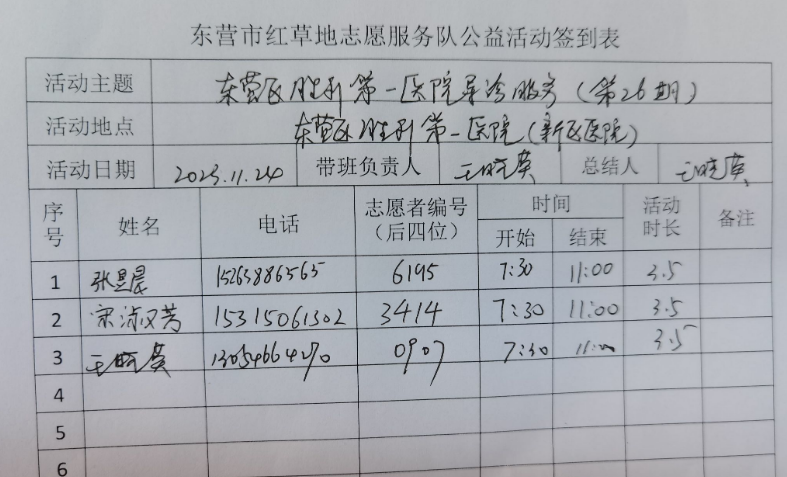 东营市红草地志愿服务队公益活动签到表
活动主题 东营区胜利第一医院导诊服务（第26期）
活动地点 东营区胜利第一医院（新区医院）
活动日期 2023.11.24 带班负责人 王晓英 总结人 王晓英
序号 姓名 电话 志愿者编号（后四位） 时间 开始 结束 活动时长 备注
1 张昱晨 15263886565 6195 7:30 11:00 3.5
2 宋淑芳 15315061302 3414 7:30 11:00 3.5
3 王晓英 13054664270 0907 7:30 11:00 3.5
4
5
6